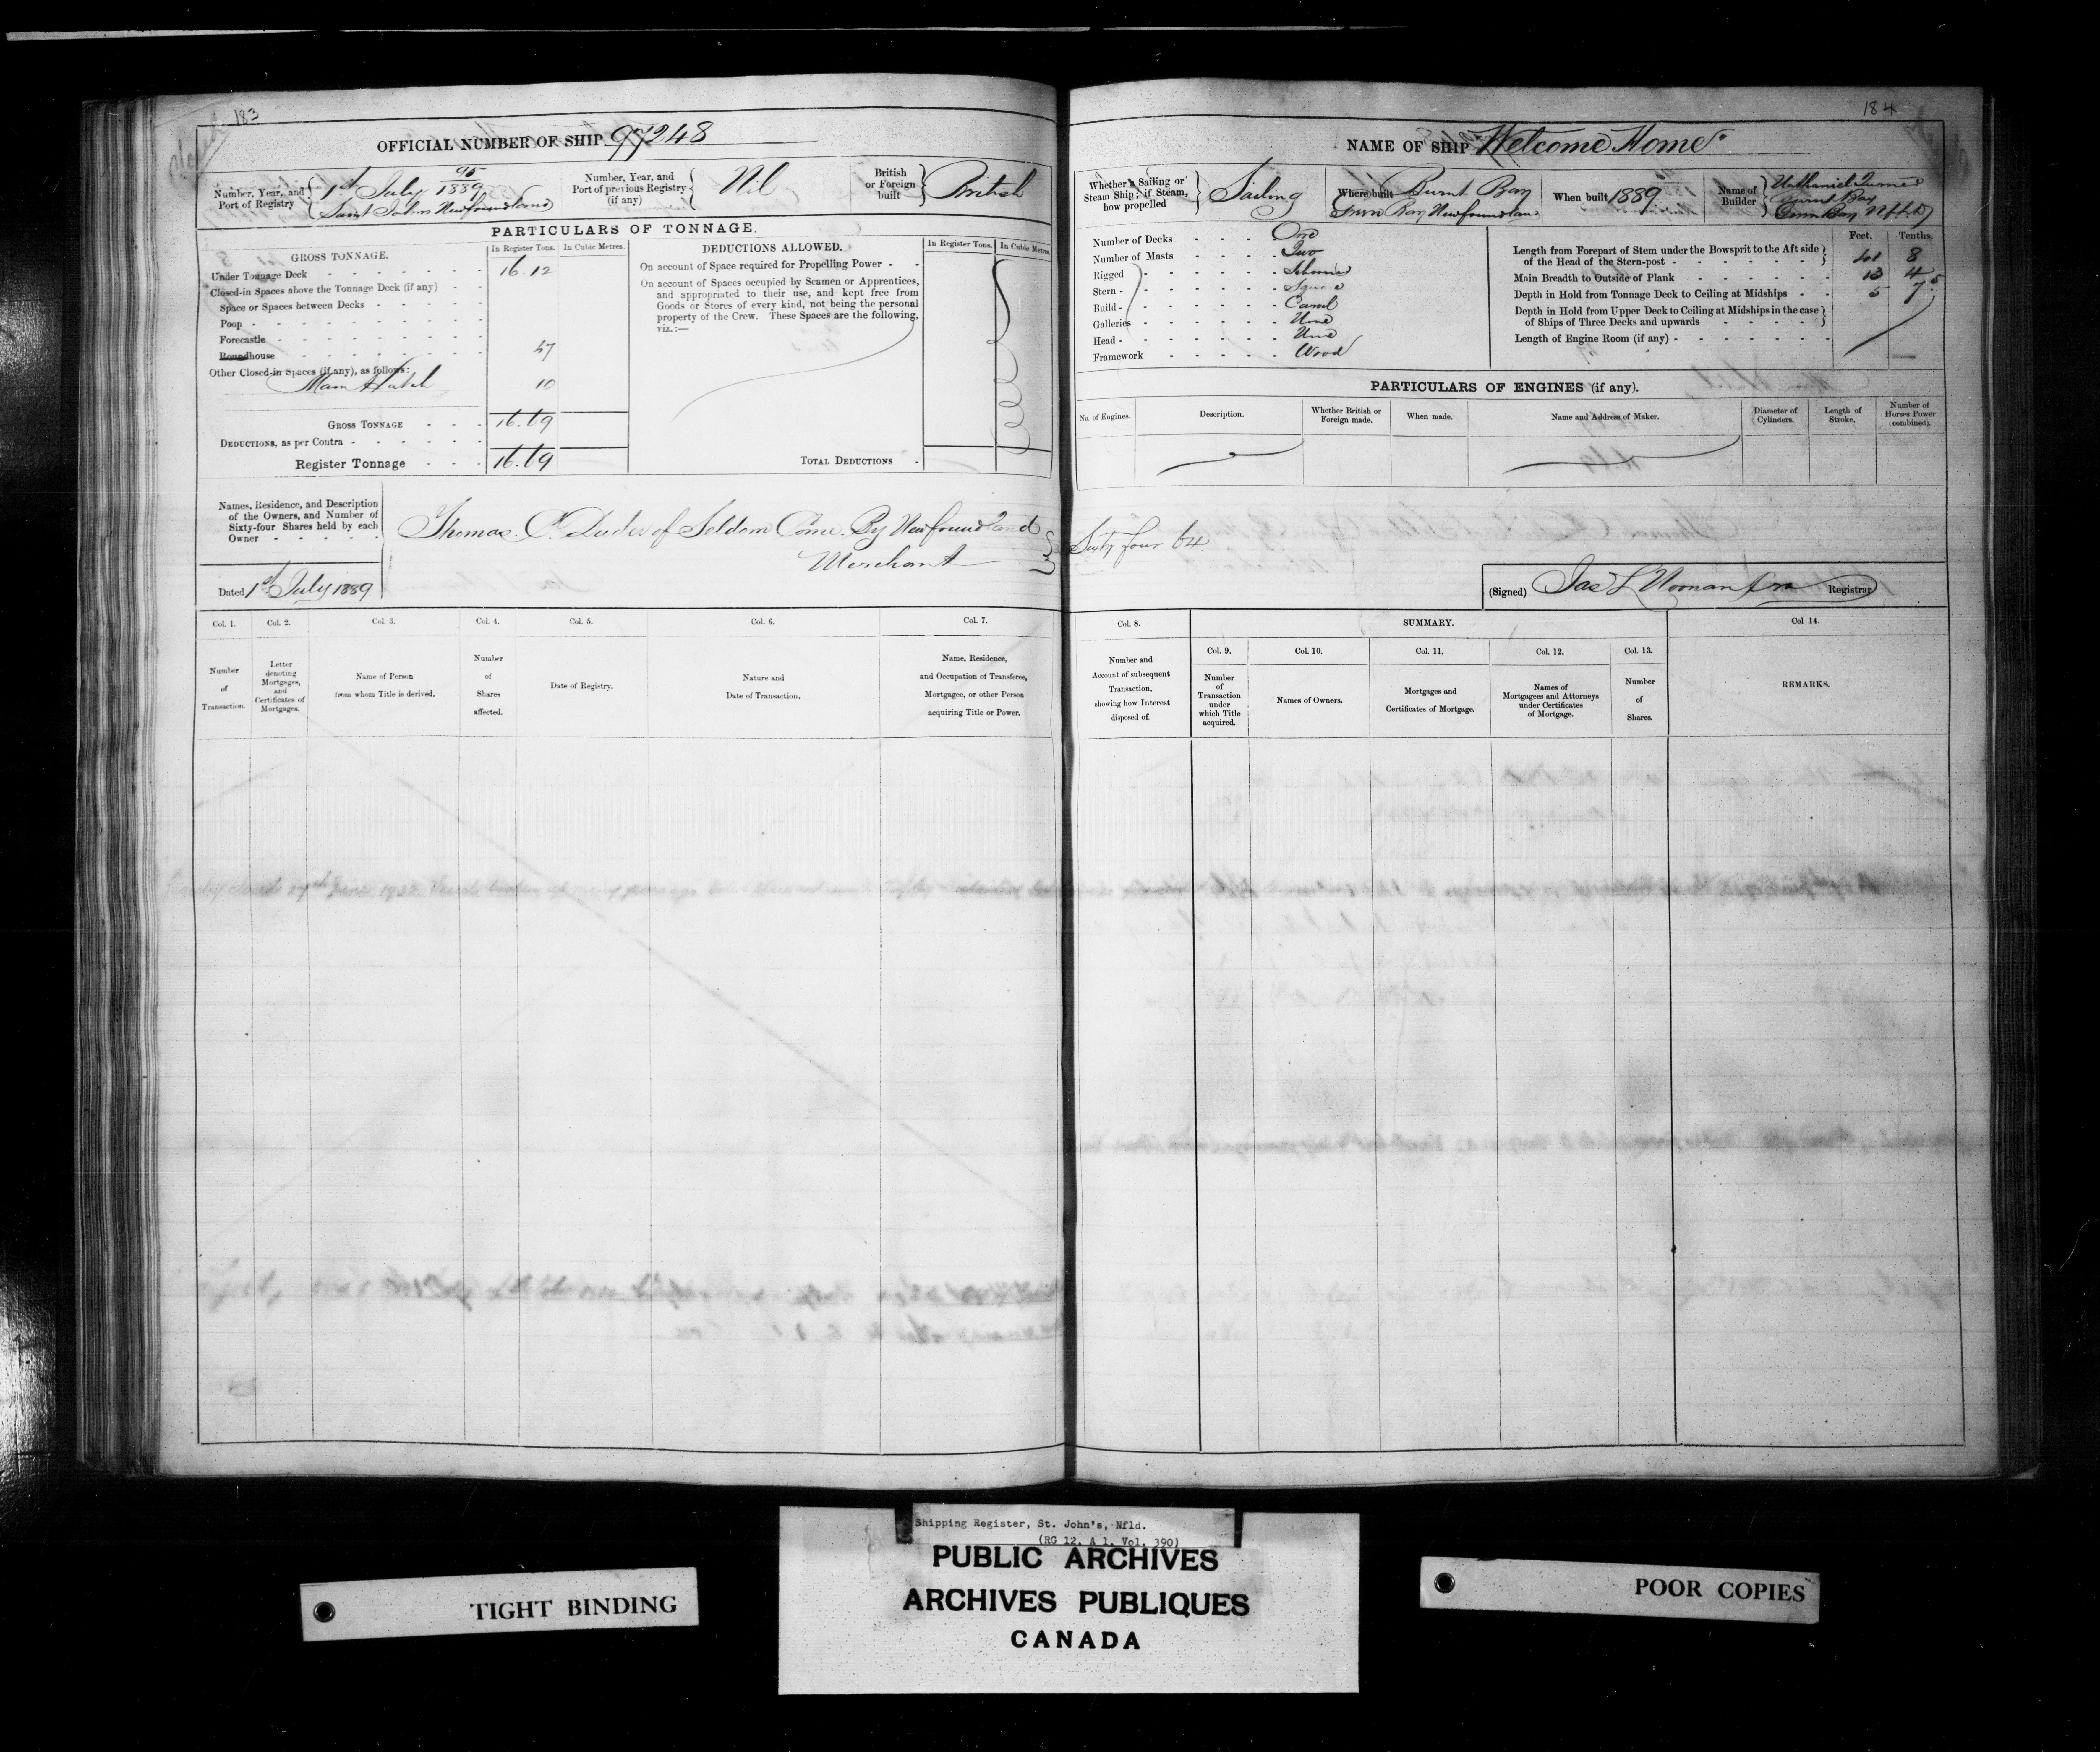 183
Closed
OFFICIAL NUMBER OF SHIP 97248
Number, Year, and Port of Registry
95
1st July 1889
Saint Johns Newfoundland
Number, Year, and Port of previous Registry (if any)
Nil
British or Foreign built
British
PARTICULARS OF TONNAGE.
GROSS TONNAGE.
In Register Tons.
In Cubic Metres.
Under Tonnage Deck
16.12
Closed-in Spaces above the Tonnage Deck (if any)
Space or Spaces between Decks
Poop
Forecastle
Roundhouse
47
Other Closed-in Spaces (if any), as follows:
Main Hatch
10
GROSS TONNAGE
16.69
DEDUCTIONS, as per Contra
Register Tonnage
16.69
DEDUCTIONS ALLOWED.
In Register Tons.
In Cubic Metres.
On account of Space required for Propelling Power
On account of Spaces occupied by Seamen or Apprentices,
and appropriated to their use, and kept free from
Goods or Stores of every kind, not being the personal
property of the Crew. These Spaces are the following,
viz.:—
TOTAL DEDUCTIONS
Names, Residence, and Description
of the Owners, and Number of
Sixty-four Shares held by each
Owner
Thomas C. Duder of Seldom Come By Newfoundland
Merchant
Dated 1st July 1889
Col. 1.
Number
of
Transaction.
Col. 2.
Letter
denoting
Mortgages,
and
Certificates of
Mortgages.
Col. 3.
Name of Person
from whom Title is derived.
Col. 4.
Number
of
Shares
affected.
Col. 5.
Date of Registry.
Col. 6.
Nature and
Date of Transaction.
Col. 7.
Name, Residence,
and Occupation of Transferee,
Mortgagee, or other Person
acquiring Title or Power.
184
NAME OF SHIP "Welcome Home"
Whether a Sailing or
Steam Ship; if Steam,
how propelled
Sailing
Where built
Burnt Bay
Green Bay Newfoundland
When built 1889
Name of Builder
Nathaniel Turner
Burnt Bay
Green Bay Nfld
Number of Decks
One
Number of Masts
Two
Rigged
Schooner
Stern
Square
Build
Carvel
Galleries
None
Head
None
Framework
Wood
Feet.
Tenths.
Length from Forepart of Stem under the Bowsprit to the Aft side
of the Head of the Stern-post
41 8
Main Breadth to Outside of Plank
13 4
Depth in Hold from Tonnage Deck to Ceiling at Midships
5 75
Depth in Hold from Upper Deck to Ceiling at Midships in the case
of Ships of Three Decks and upwards
Length of Engine Room (if any)
PARTICULARS OF ENGINES (if any).
No. of Engines.
Description.
Whether British or
Foreign made.
When made.
Name and Address of Maker.
Diameter of
Cylinders.
Length of
Stroke.
Number of
Horses Power
(combined).
Sixty four 64
(Signed) Jas L Noonan
Registrar
Col. 8.
Number and
Account of subsequent
Transaction,
showing how Interest
disposed of.
SUMMARY.
Col. 9.
Number
of
Transaction
under
which Title
acquired.
Col. 10.
Names of Owners.
Col. 11.
Mortgages and
Certificates of Mortgage.
Col. 12.
Names of
Mortgagees and Attorneys
under Certificates
of Mortgage.
Col. 13.
Number
of
Shares.
Col 14.
REMARKS.
Shipping Register, St. John's, Nfld.
(RG 12, A 1, Vol. 390)
PUBLIC ARCHIVES
ARCHIVES PUBLIQUES
CANADA
TIGHT BINDING
POOR COPIES